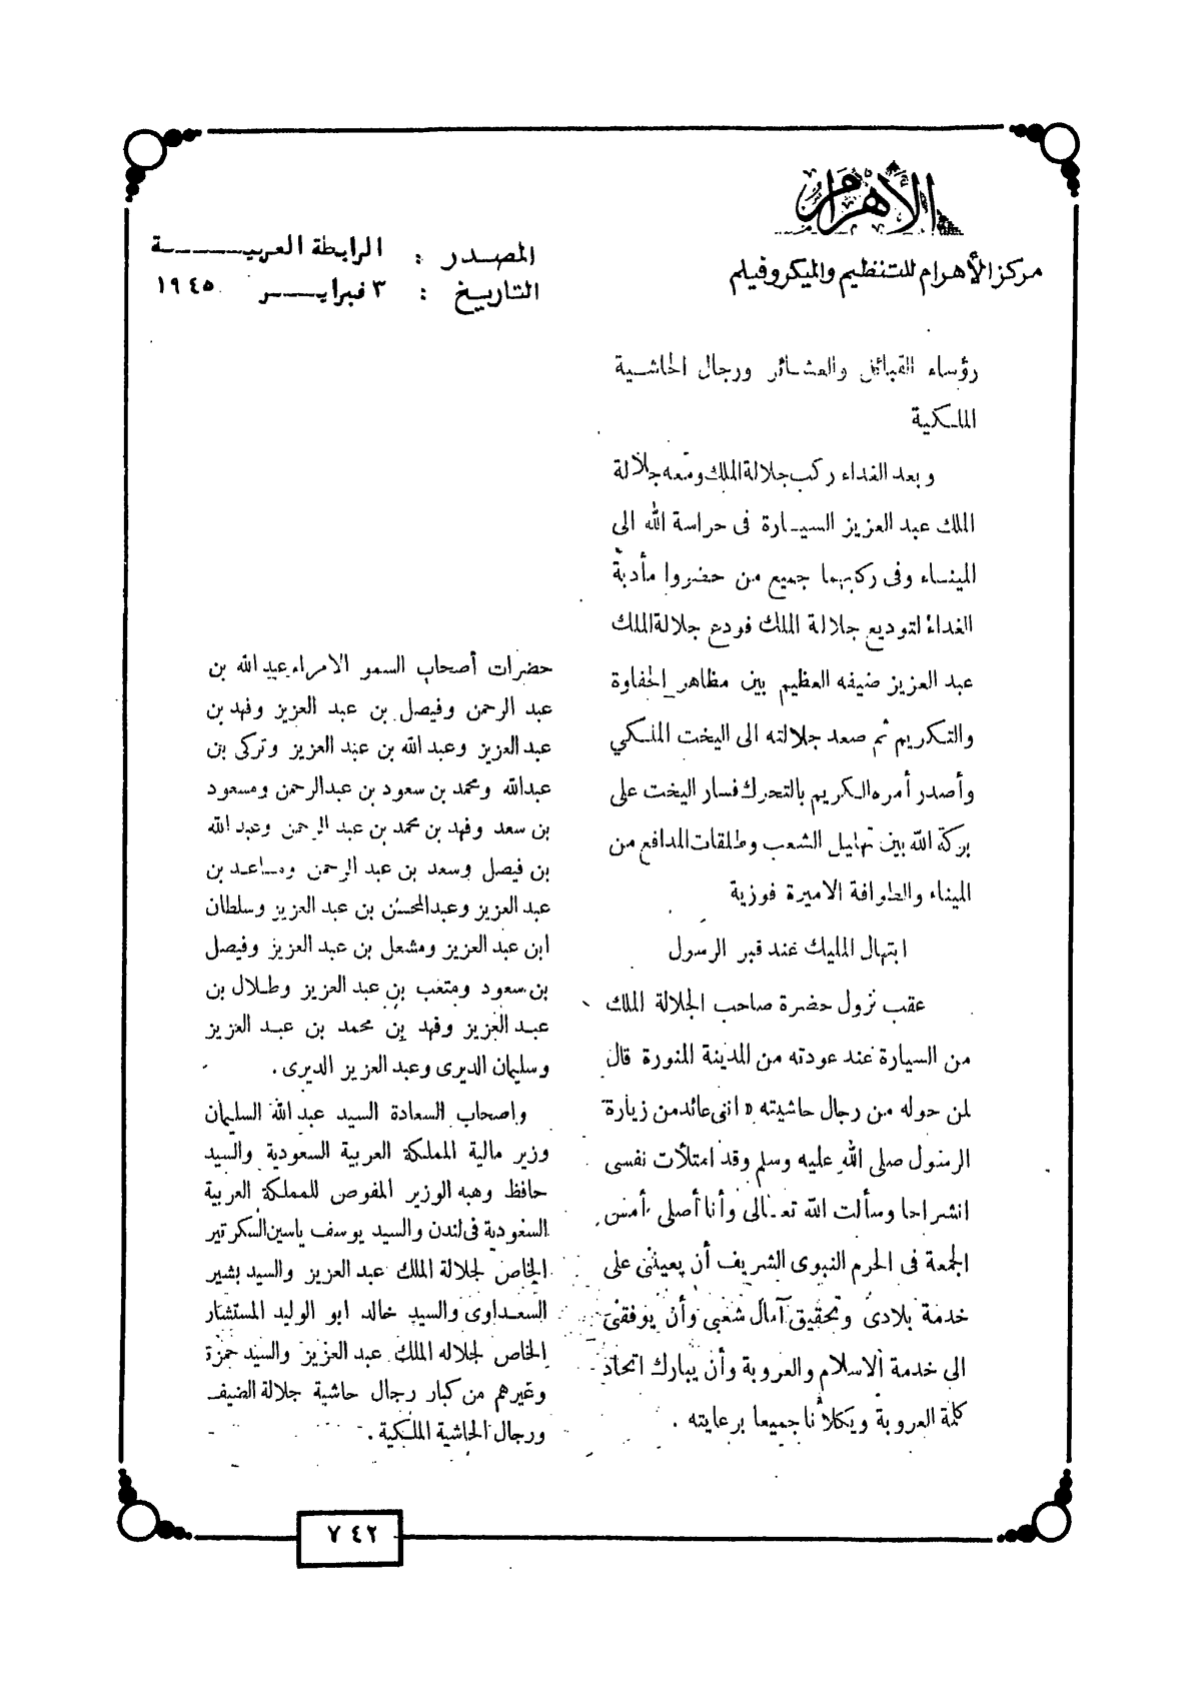 الأهرام
مركز الأهرام للتنظيم والميكروفيلم
المصدر : الرابطة العربية
التاريخ : ٣ فبراير ١٩٤٥
رؤساء القبائل والعشائر ورجال الحاشية
الملكية
وبعد الغداء ركب جلالة الملك ومعه جلالة
الملك عبد العزيز السيارة فى حراسة الله الى
الميناء وفى ركبهما جميع من حضروا مأدبة
الغداء لتوديع جلالة الملك فودع جلالة الملك
عبد العزيز ضيفه العظيم بين مظاهر الحفاوة
والتكريم ثم صعد جلالته الى اليخت الملكي
وأصدر أمره الكريم بالتحرك فسار اليخت على
بركة الله بين تهليل الشعب وطلقات المدافع من
الميناء والطوافة الاميرة فوزية
ابتهال المليك عند قبر الرسول
عقب نزول حضرة صاحب الجلالة الملك
من السيارة عند عودته من المدينة المنورة قال
لمن حوله من رجال حاشيته « انى عائد من زيارة
الرسول صلى الله عليه وسلم وقد امتلأت نفسى
انشراحا وسألت الله تعالى وأنا أصلى أمس
الجمعة فى الحرم النبوى الشريف أن يعيننى على
خدمة بلادى وتحقيق آمال شعبى وأن يوفقنى
الى خدمة الاسلام والعروبة وأن يبارك اتحاد
كلمة العروبة ويكلأنا جميعا برعايته .
حضرات أصحاب السمو الامراء عبد الله بن
عبد الرحمن وفيصل بن عبد العزيز وفهد بن
عبد العزيز وعبد الله بن عبد العزيز وتركى بن
عبدالله ومحمد بن سعود بن عبدالرحمن ومسعود
بن سعد وفهد بن محمد بن عبد الرحمن وعبد الله
بن فيصل وسعد بن عبد الرحمن ومساعد بن
عبد العزيز وعبدالمحسن بن عبد العزيز وسلطان
ابن عبد العزيز ومشعل بن عبد العزيز وفيصل
بن سعود ومتعب بن عبد العزيز وطلال بن
عبد العزيز وفهد بن محمد بن عبد العزيز
وسليمان الديرى وعبد العزيز الديرى .
واصحاب السعادة السيد عبد الله السليمان
وزير مالية المملكة العربية السعودية والسيد
حافظ وهبه الوزير المفوض للمملكة العربية
السعودية فى لندن والسيد يوسف ياسين السكرتير
الخاص لجلالة الملك عبد العزيز والسيد بشير
السعداوى والسيد خالد ابو الوليد المستشار
الخاص لجلاله الملك عبد العزيز والسيد حمزة
وغيرهم من كبار رجال حاشية جلالة الضيف
ورجال الحاشية الملكية .
٧٤٢